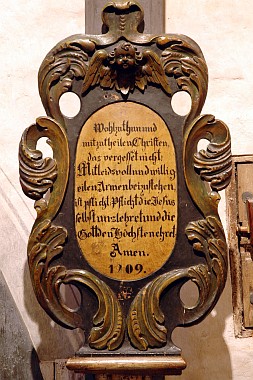 Wohlzuthun und
mitzutheilen Christen,
das vergesset nicht,
Mitleidsvoll und willig
eilen Armen beizustehen,
ist pflicht. Pflicht die Jesus
selbst uns lehret und die
Gott den Höchsten ehret
Amen.
1209.